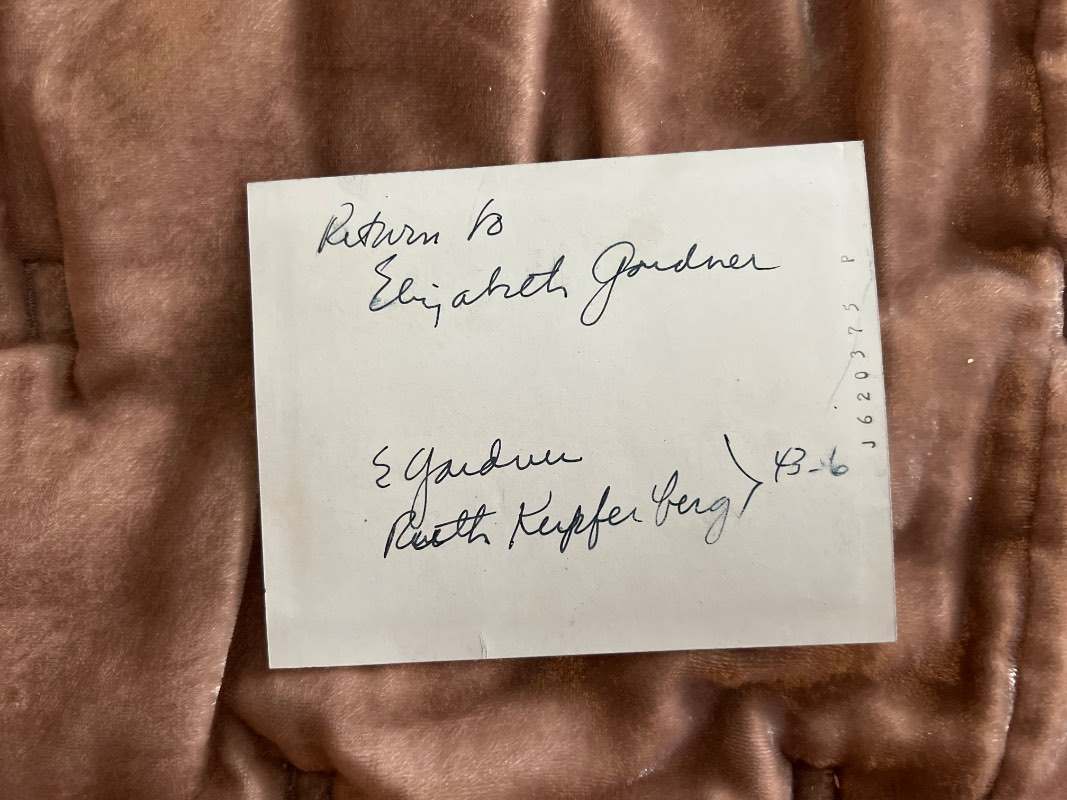 Return to
Elizabeth Gardner
E Gardner
Ruth Kupferberg
43-6
J620375 P